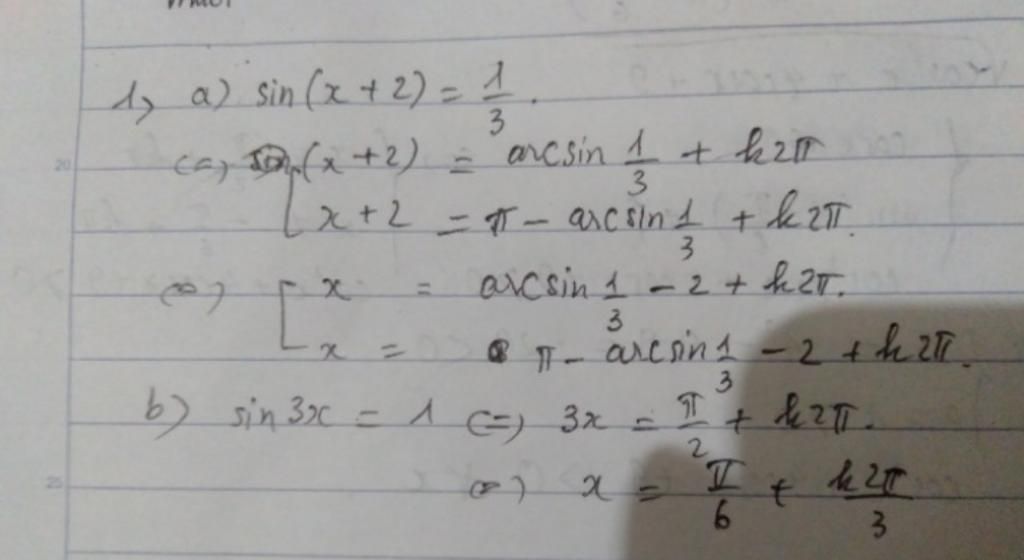 1, a) sin(x + 2) = 1/3.
<=> (x + 2) = arcsin 1/3 + k2π
x + 2 = π - arcsin 1/3 + k2π.
<=> x = arcsin 1/3 - 2 + k2π.
x = π - arcsin 1/3 - 2 + k2π.
b) sin3x = 1 <=> 3x = π/2 + k2π.
<=> x = π/6 + k2π/3
20
25